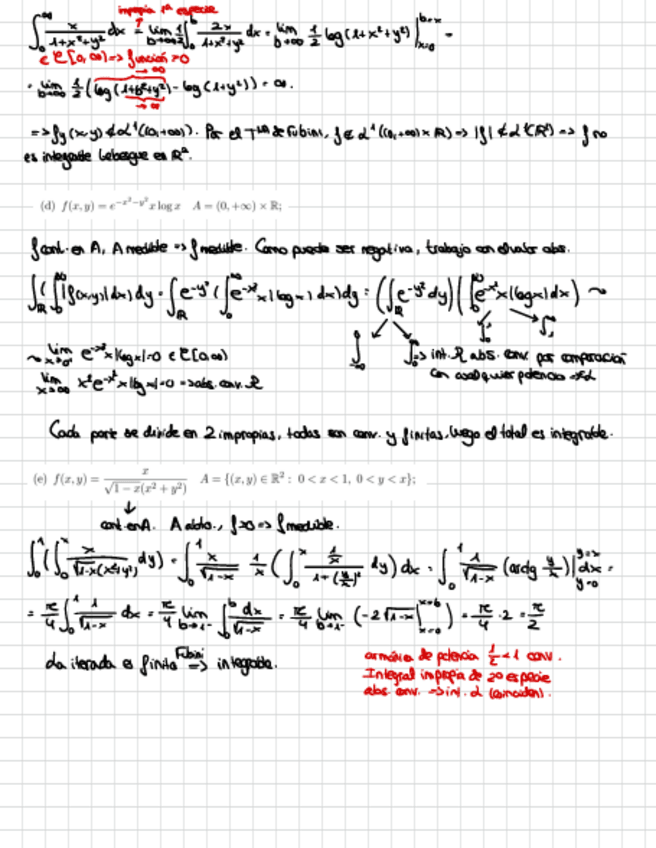 impropia 1ª especie
∫₀^∞ x/(1+x²+y²) dx = lim_{b→∞} 1/2 ∫₀^b 2x/(1+x²+y²) dx = lim_{b→∞} 1/2 log(1+x²+y²) |_{x=0}^{b=x} =
∈ C[0,∞) => función >0
→ ∞
= lim_{b→∞} 1/2 (log(1+b²+y²) - log(1+y²)) = ∞.
→ ∞
=> fy(x,y) ∉ L¹((0,+∞)). Por el Tᵐᵃ de Fubini, f ∉ L¹((0,+∞)×ℝ) => |f| ∉ L¹(ℝ²) => f no
es integrable Lebesgue en ℝ².
(d) f(x,y) = e^{-x²-y²} x log x A = (0,+∞) × ℝ;
f cont. en A, A medible => f medible. Como puede ser negativa, trabajo con el valor abs.
∫_ℝ (∫₀^∞ |f(x,y)| dx) dy = ∫_ℝ e^{-y²} (∫₀^∞ e^{-x²} x |log x| dx) dy = (∫_ℝ e^{-y²} dy) (∫₀^∞ e^{-x²} x |log x| dx) ~
~ lim_{x→0} e^{-x²} x |log x| = 0 ∈ C[0,∞) => int. R abs. conv. por comparación
lim_{x→∞} x² e^{-x²} x |log x| = 0 => abs. conv. R con cualquier potencia
Cada parte se divide en 2 impropias, todas son conv. y finitas, luego el total es integrable.
(e) f(x,y) = x/(√(1-x)(x²+y²)) A = {(x,y) ∈ ℝ² : 0 < x < 1, 0 < y < x};
↓
cont. en A. A abto., f>0 => f medible.
∫₀¹ (∫₀^x x/(√(1-x)(x²+y²)) dy) = ∫₀¹ x/√(1-x) 1/x (∫₀^x (1/x)/(1+(y/x)²) dy) dx = ∫₀¹ 1/√(1-x) (arctg y/x) |_{y=0}^{y=x} dx =
= π/4 ∫₀¹ 1/√(1-x) dx = π/4 lim_{b→1⁻} ∫₀^b dx/√(1-x) = π/4 lim_{b→1⁻} (-2√(1-x) |_{x=0}^{x=b}) = π/4 · 2 = π/2
La iterada es finita =>^{Fubini} integrable.
armónica de potencia 1/2 < 1 conv.
Integral impropia de 2º especie
abs. conv. => int. L (coinciden).